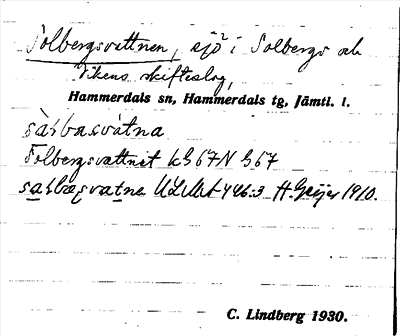 Solbergsvattnen, sjö i Solbergs och
Vikens skifteslag,
Hammerdals sn, Hammerdals tg, Jämtl. l.
sàɫbasvátna
Solbergsvattnet kG 67 N G 67
saɫbasvatne ULMA 446:3 H. Geijer 1910.
C. Lindberg 1930.